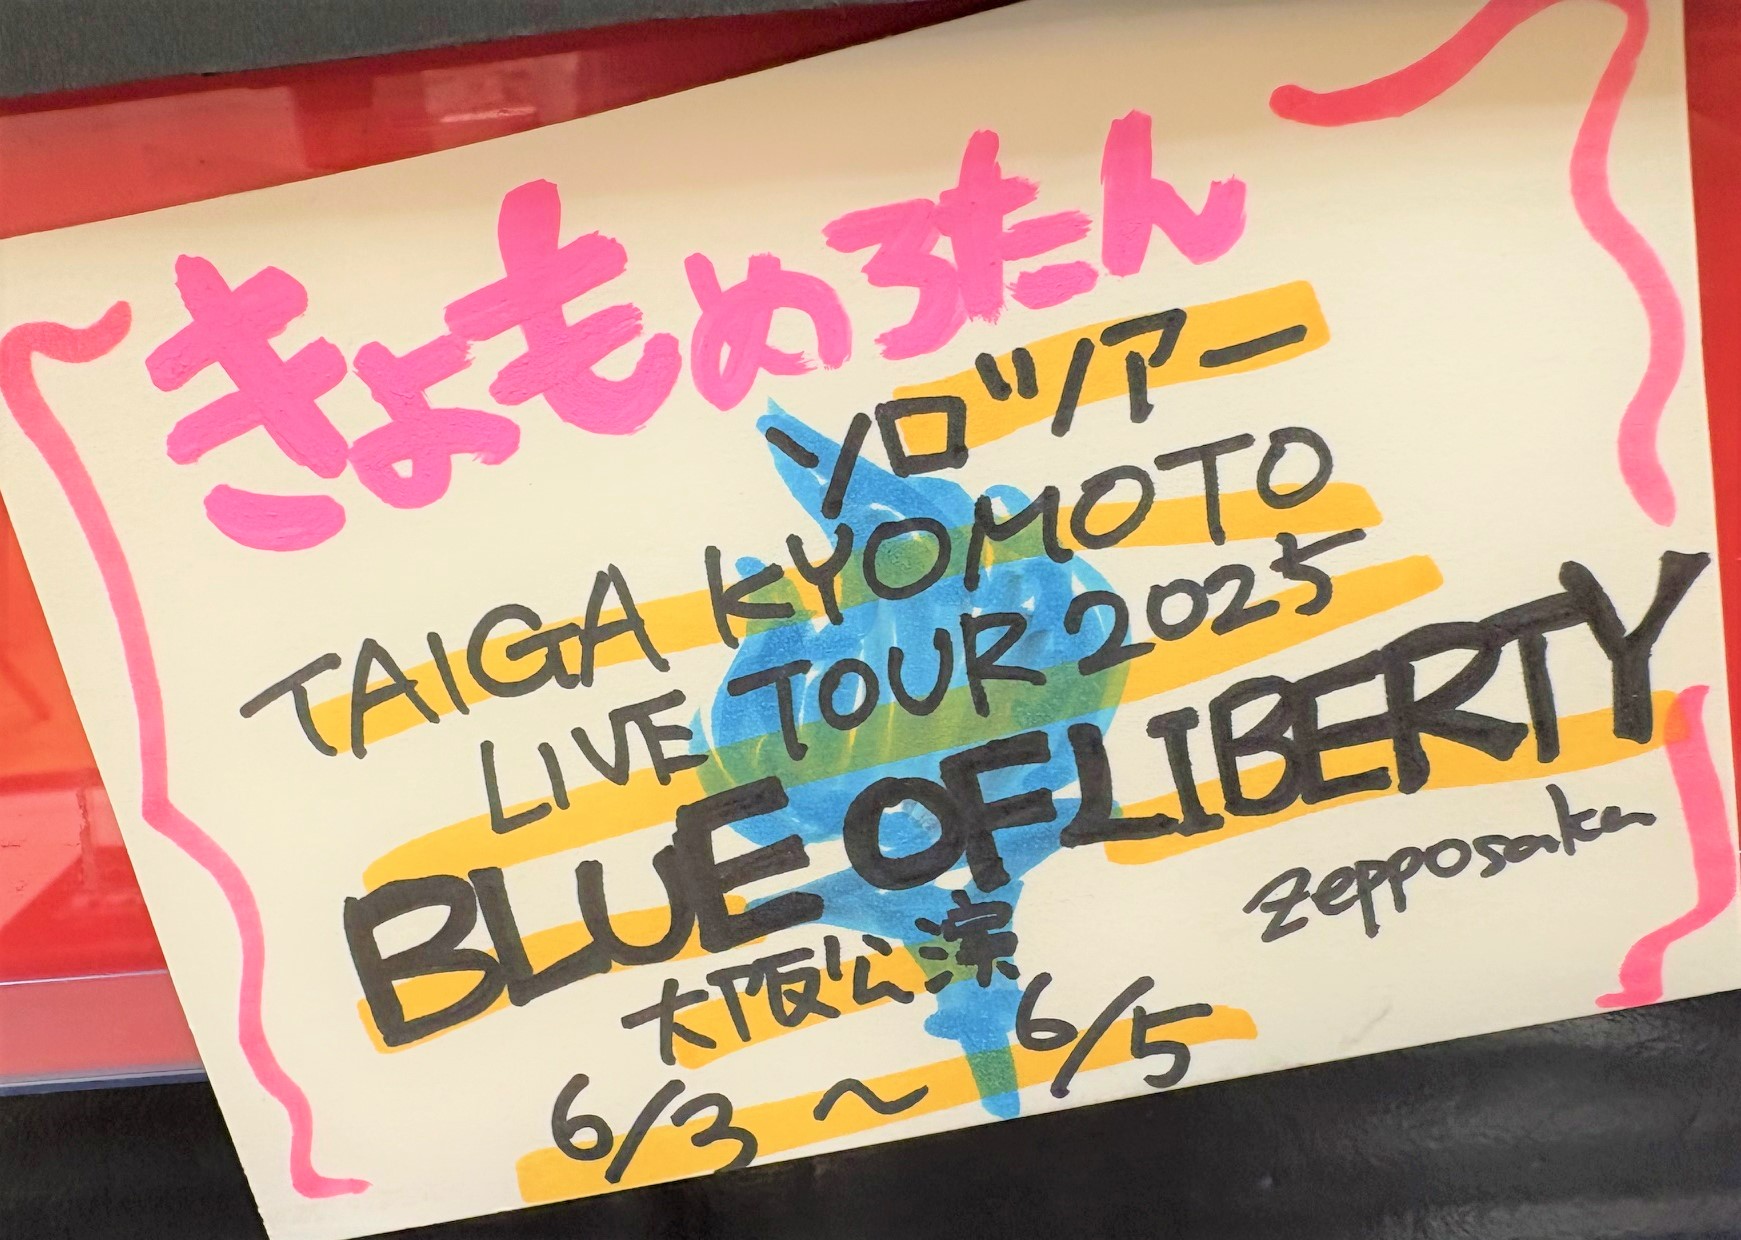 きょもめろたん
ソロツアー
TAIGA KYOMOTO
LIVE TOUR 2025
BLUE OF LIBERTY
Zepposaka
大阪公演
6/3～6/5